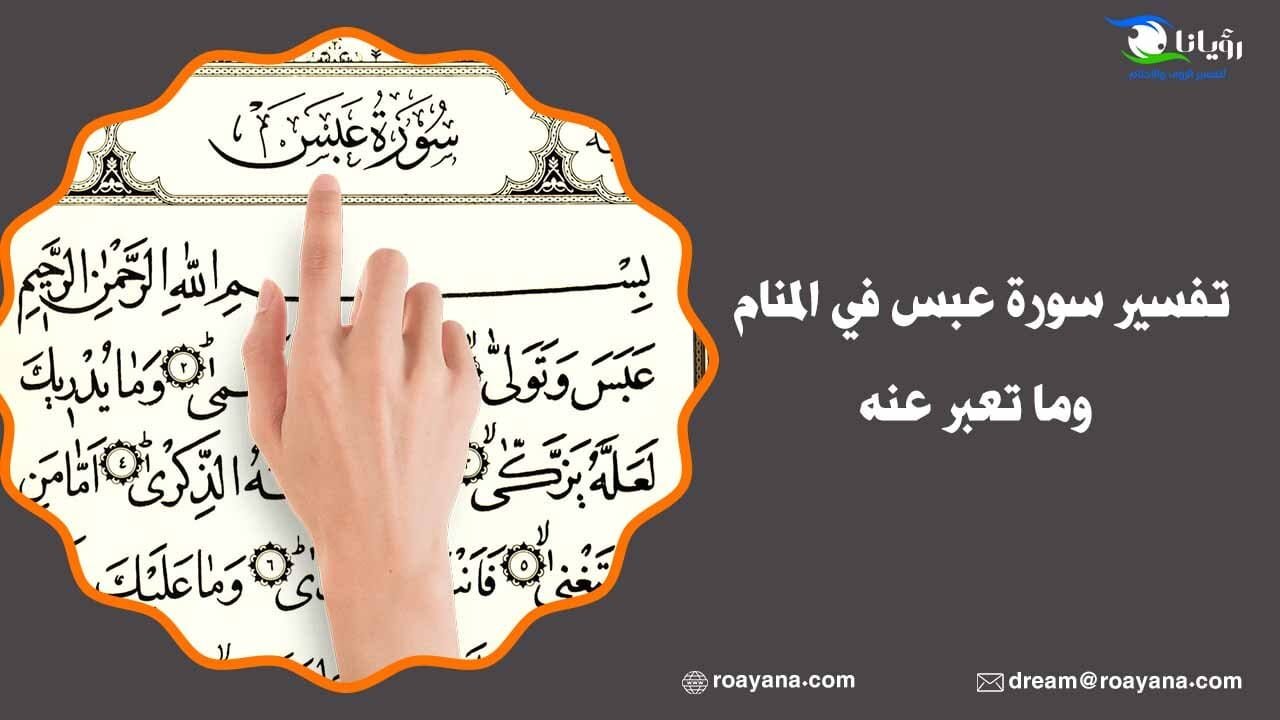 رؤيانا
لتفسير الرؤى والأحلام
سُورَةُ عَبَسَ
بِسْمِ اللَّهِ الرَّحْمَٰنِ الرَّحِيمِ
عَبَسَ وَتَوَلَّىٰ ٢ وَمَا يُدْرِيكَ
لَعَلَّهُ يَزَّكَّىٰ الذِّكْرَىٰ ٤ أَمَّا مَنِ
٥ ٦ وَمَا عَلَيْكَ
تفسير سورة عبس في المنام
وما تعبر عنه
roayana.com
dream@roayana.com